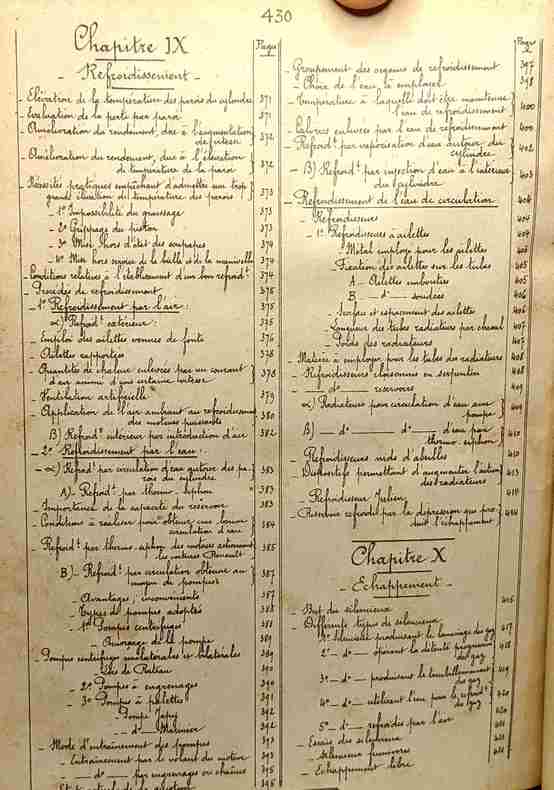 430
Chapitre IX
Pages
- Refroidissement -
- Elévation de la température des parois du cylindre 371
- Evaluation de la perte par paroi 371
- Amélioration du rendement, due à l'augmentation
de vitesse 372
- Amélioration du rendement, due à l'élévation
de température de la paroi 372
- Nécessités pratiques empêchant d'admettre une trop
grande élévation de température des parois 373
- 1° Impossibilité du graissage 373
- 2° Grippage du piston 373
- 3° Mise hors d'état des soupapes 374
- 4° Mise hors service de la bielle et de la manivelle 374
- Conditions relatives à l'établissement d'un bon refroidt 374
- Procédés de refroidissement 375
- 1° Refroidissement par l'air : 375
α) Refroidt extérieur : 375
- Emploi des ailettes venues de fonte 376
- Ailettes rapportées 378
- Quantités de chaleur enlevées par un courant
d'air animé d'une certaine vitesse 378
- Ventilation artificielle 379
- Application de l'air ambiant au refroidissement
des moteurs puissants 380
β) Refroidt intérieur par introduction d'air 382
- 2° Refroidissement par l'eau :
- α) Refroidt par circulation d'eau autour des pa-
rois du cylindre 383
A)- Refroidt par thermo-siphon 383
- Importance de la capacité du réservoir 383
- Conditions à réaliser pour obtenir une bonne
circulation d'eau 384
- Refroidt par thermo-siphon des moteurs actionnant
les voitures Renault 385
B)- Refroidt par circulation obtenue au
moyen de pompes 387
- Avantages ; inconvénients 387
- Types de pompes adoptés 388
- 1° Pompes centrifuges 388
- Amorçage de la pompe 389
- Pompes centrifuges unilatérales et bilatérales 389
390
- 2° Pompes à engrenages 390
- 3° Pompes à palettes 391
- Pompe Japy 392
- d° 392
- Mode d'entraînement des pompes 393
- Entraînement par le volant du moteur 393
- d° - par engrenages ou chaînes 395
Pages
- Groupement des organes de refroidissement 397
- Choix de l'eau à employer 398
- Température à laquelle doit être maintenue
l'eau de refroidissement 400
- Calories enlevées par l'eau de refroidissement 400
- Refroidt par vaporisation d'eau autour du
cylindre 402
- B) Refroidt par injection d'eau à l'intérieur
du cylindre 403
- Refroidissement de l'eau de circulation 404
- Refroidisseurs 404
- 1° Refroidisseurs à ailettes 404
- Métal employé pour les ailettes 405
- Fixation des ailettes sur les tubes 405
A - Ailettes embouties 405
B - d° - soudées 406
- Surface et espacement des ailettes 406
- Longueur des tubes radiateurs par cheval 407
- Poids des radiateurs 407
- Matière à employer pour les tubes des radiateurs 408
- Refroidisseurs cloisonnés en serpentin 408
- d° - réservoirs 409
α) Radiateurs pour circulation d'eau avec
pompe 409
β) - d° - d° - d'eau par
thermo-siphon 410
- Refroidisseurs nids d'abeilles 410
- Dispositifs permettant d'augmenter l'action
des radiateurs 413
- Refroidisseur Julien 414
- Réservoir refroidi par la dépression que pro-
duit l'échappement 414
Chapitre X
- Echappement -
- But du silencieux 415
- Différents types de silencieux
1° Silencieux produisant le laminage des gaz 417
2° - d° - opérant la détente progressive
des gaz
3° - d° - produisant le tourbillonnement
des gaz 419
4° - d° - utilisant l'eau pour le refroidt
du gaz 420
5° - d° - refroidis par l'air 420
- Essais des silencieux
- Silencieux fumivores
- Echappement libre